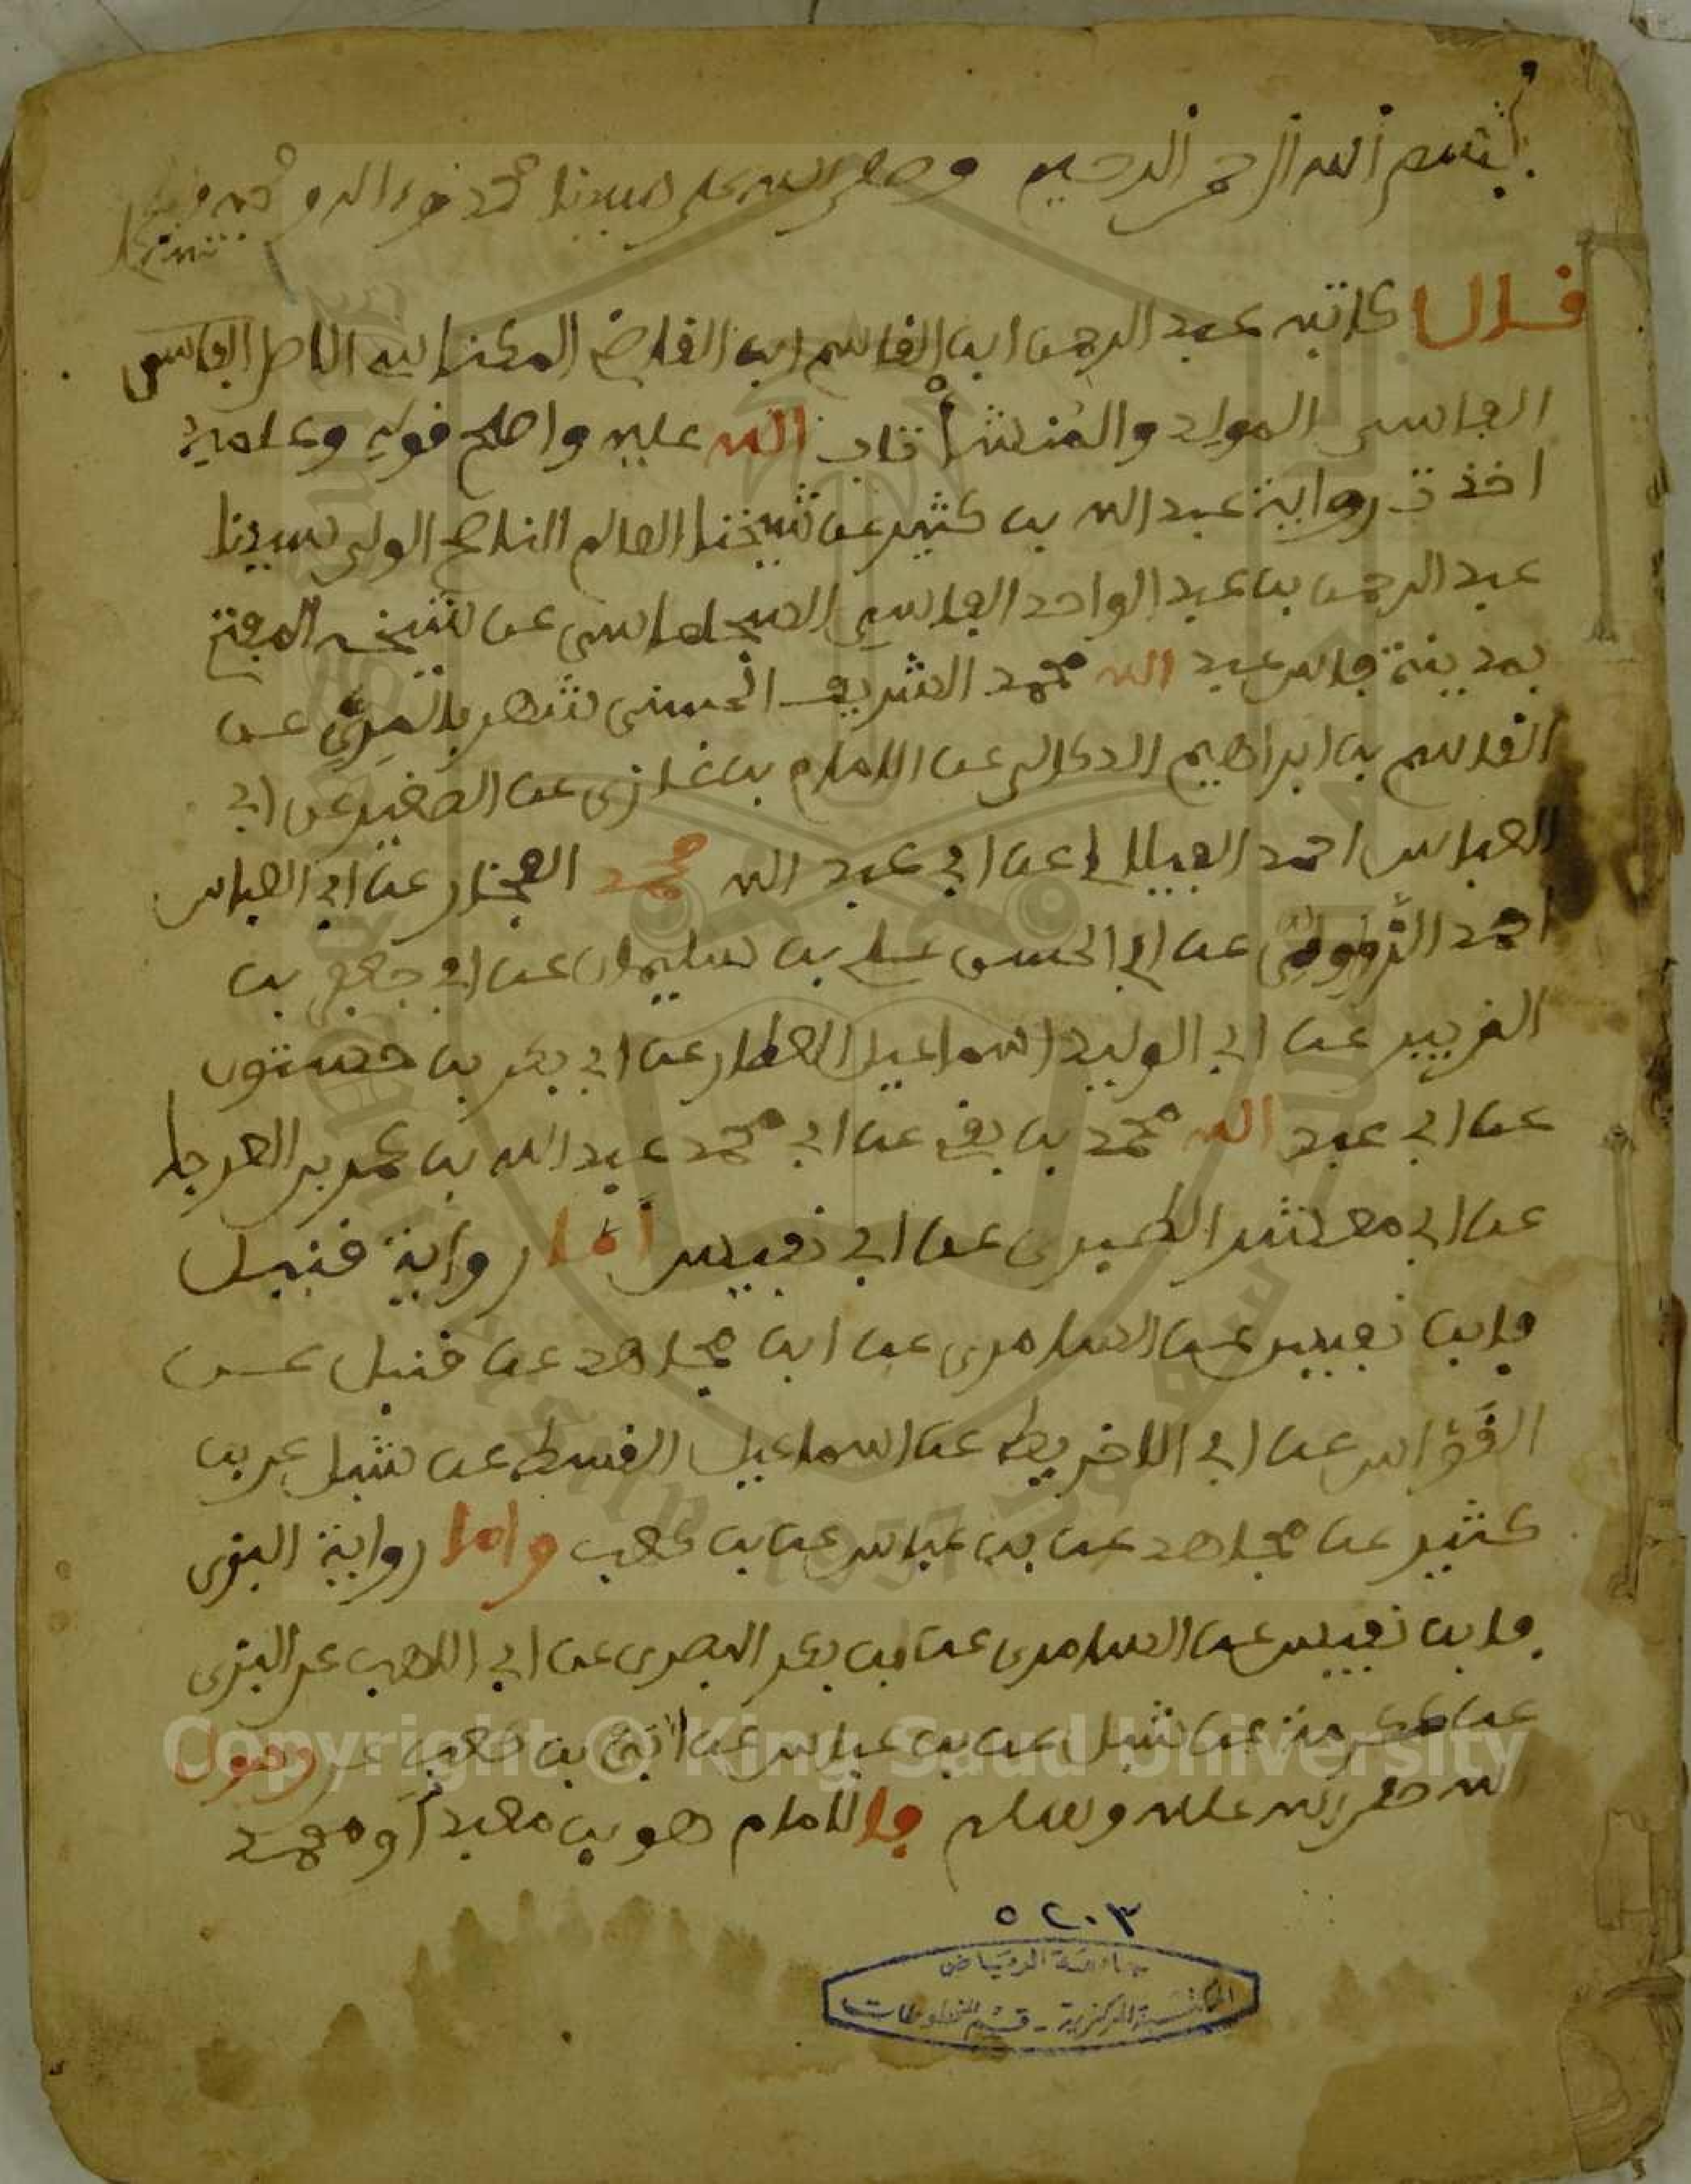 بسم الله الرحمن الرحيم وصلى الله على سيدنا محمد وءاله وصحبه
قال كاتبه عبد الرحمن ابن القاسم ابن القاضي المكناسي الاصل الفاسي
الفاسي المولد والمنشأ تاب الله عليه واصلح قوله وعلمه
اخذت رواية عبد الله بن كثير عن شيخنا العالم الناصح الولي سيدنا
عبد الرحمن بن عبد الواحد الفاسي السجلماسي عن شيخه المفتي
بمدينة فاس عبد الله محمد الشريف الحسني شهر بالمري عن
القاسم بن ابراهيم الدكالي عن الامام بن غازي عن الصغير عن ابي
العباس احمد الفيلالي عن ابي عبد الله محمد الفخار عن ابي العباس
احمد الزواوي عن ابي الحسن علي بن سليمان عن ابي جعفر بن
الزبير عن ابي الوليد اسماعيل العطار عن ابي بكر بن حسنون
عن ابي عبد الله محمد بن بقي عن ابي محمد عبد الله بن عمر بن العرجا
عن ابي معشر الطبري عن ابي نفيس أما رواية قنبل
فابن نفيس عن السامري عن ابن مجاهد عن قنبل عن
القواس عن ابي الاخريط عن اسماعيل القسط عن شبل عن بن
كثير عن مجاهد عن بن عباس عن بن كعب واما رواية البزي
فابن نفيس عن السامري عن بن بكر البصري عن ابي اللهب عن البزي
عن عكرمة عن شبل عن بن عباس عن أبي بن كعب عن رسول
الله صلى الله عليه وسلم فالامام هو بن معبد أو محمد
٥٢٠٣
جامعة الرياض
المكتبة المركزية - قسم المخطوطات
Copyright © King Saud University